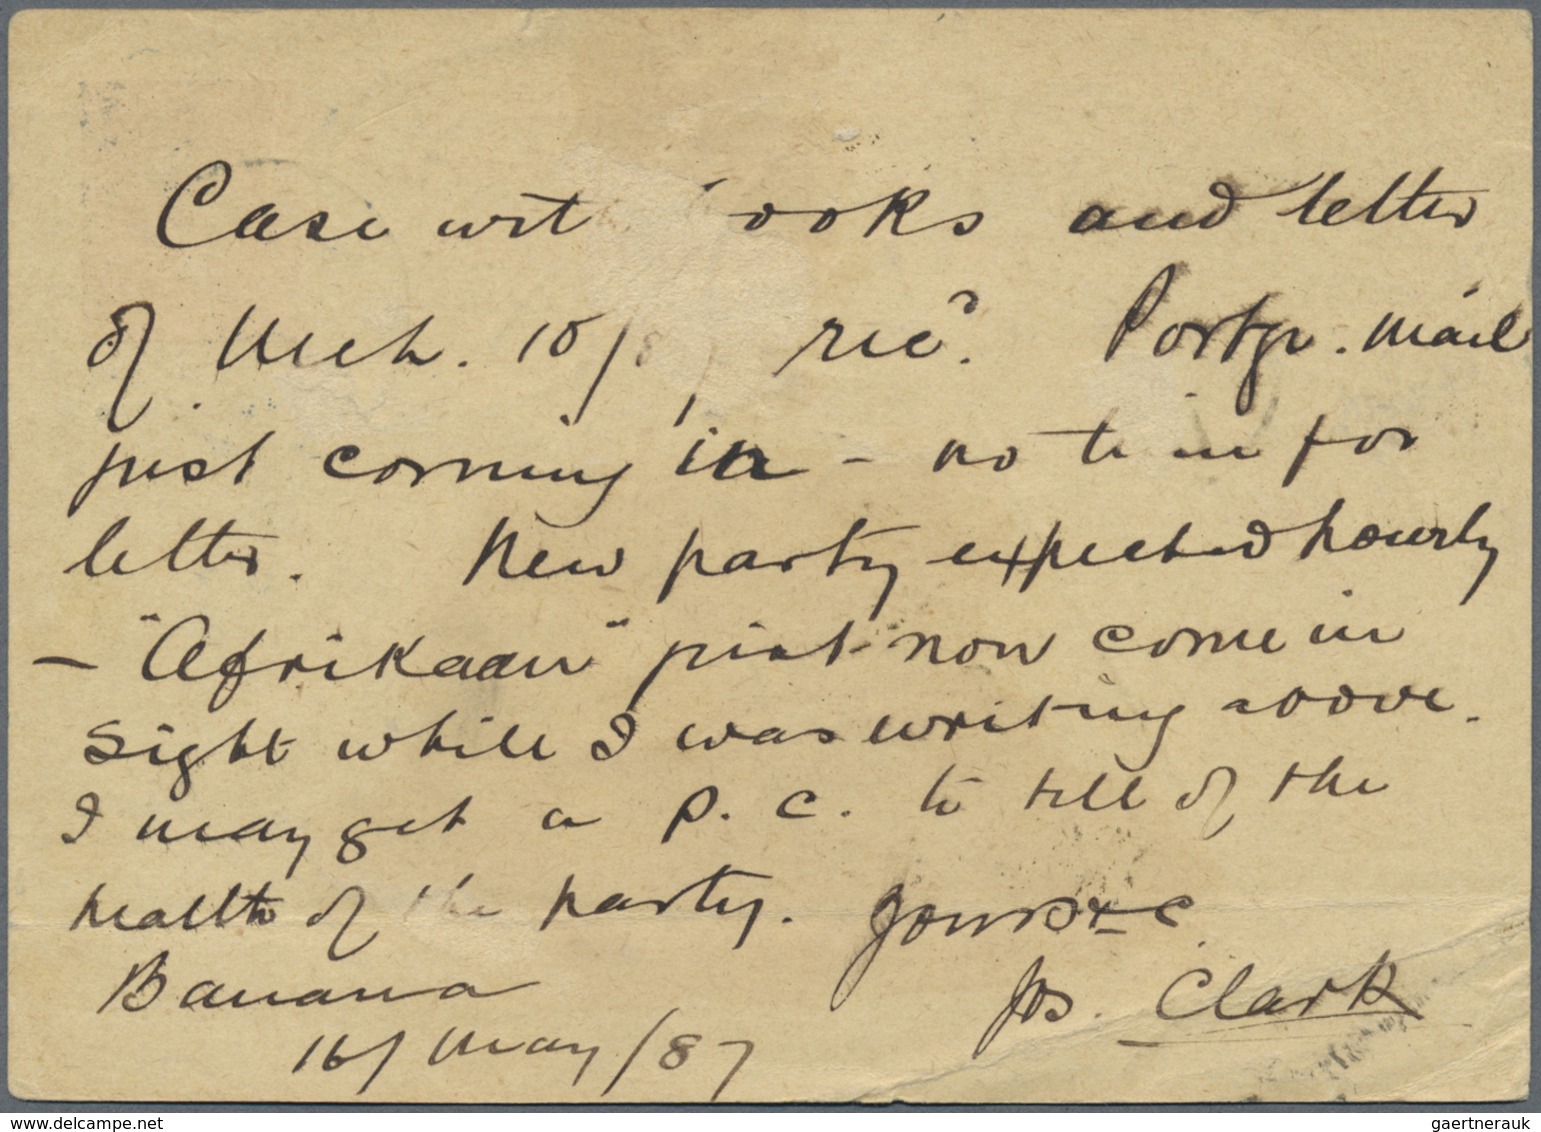 Case with books and letter
of Mch. 10/8 , rec?. Portgr. mail
just coming in - no time for
letter. New party expected hourly
- "Afrikaan" just now come in
sight while I was writing above.
I may get a p. c. to tell of the
health of the party. Yours &c
Banana Jos. Clark
16/ May /87
gaertnerauk / Delcampe.net